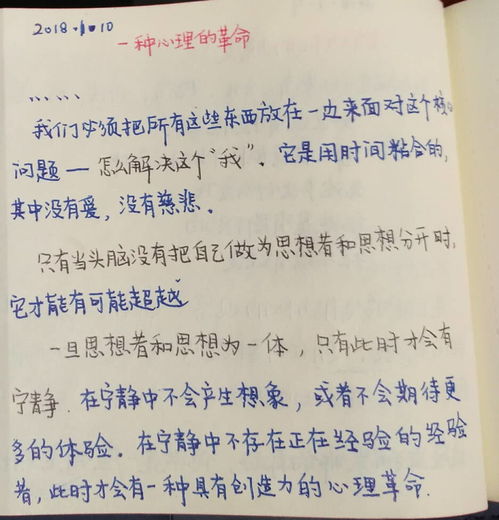 2018.1.10
一种心理的革命
……
我们必须把所有这些东西放在一边来面对这个核心
问题一怎么解决这个“我”. 它是用时间粘合的,
其中没有爱,没有慈悲.
只有当头脑没有把自己做为思想者和思想分开时,
它才能有可能超越
一旦思想者和思想为一体,只有此时才会有
宁静. 在宁静中不会产生想象,或者不会期待更
多的体验. 在宁静中不存在正在经验的经验
者,此时才会有一种具有创造力的心理革命.